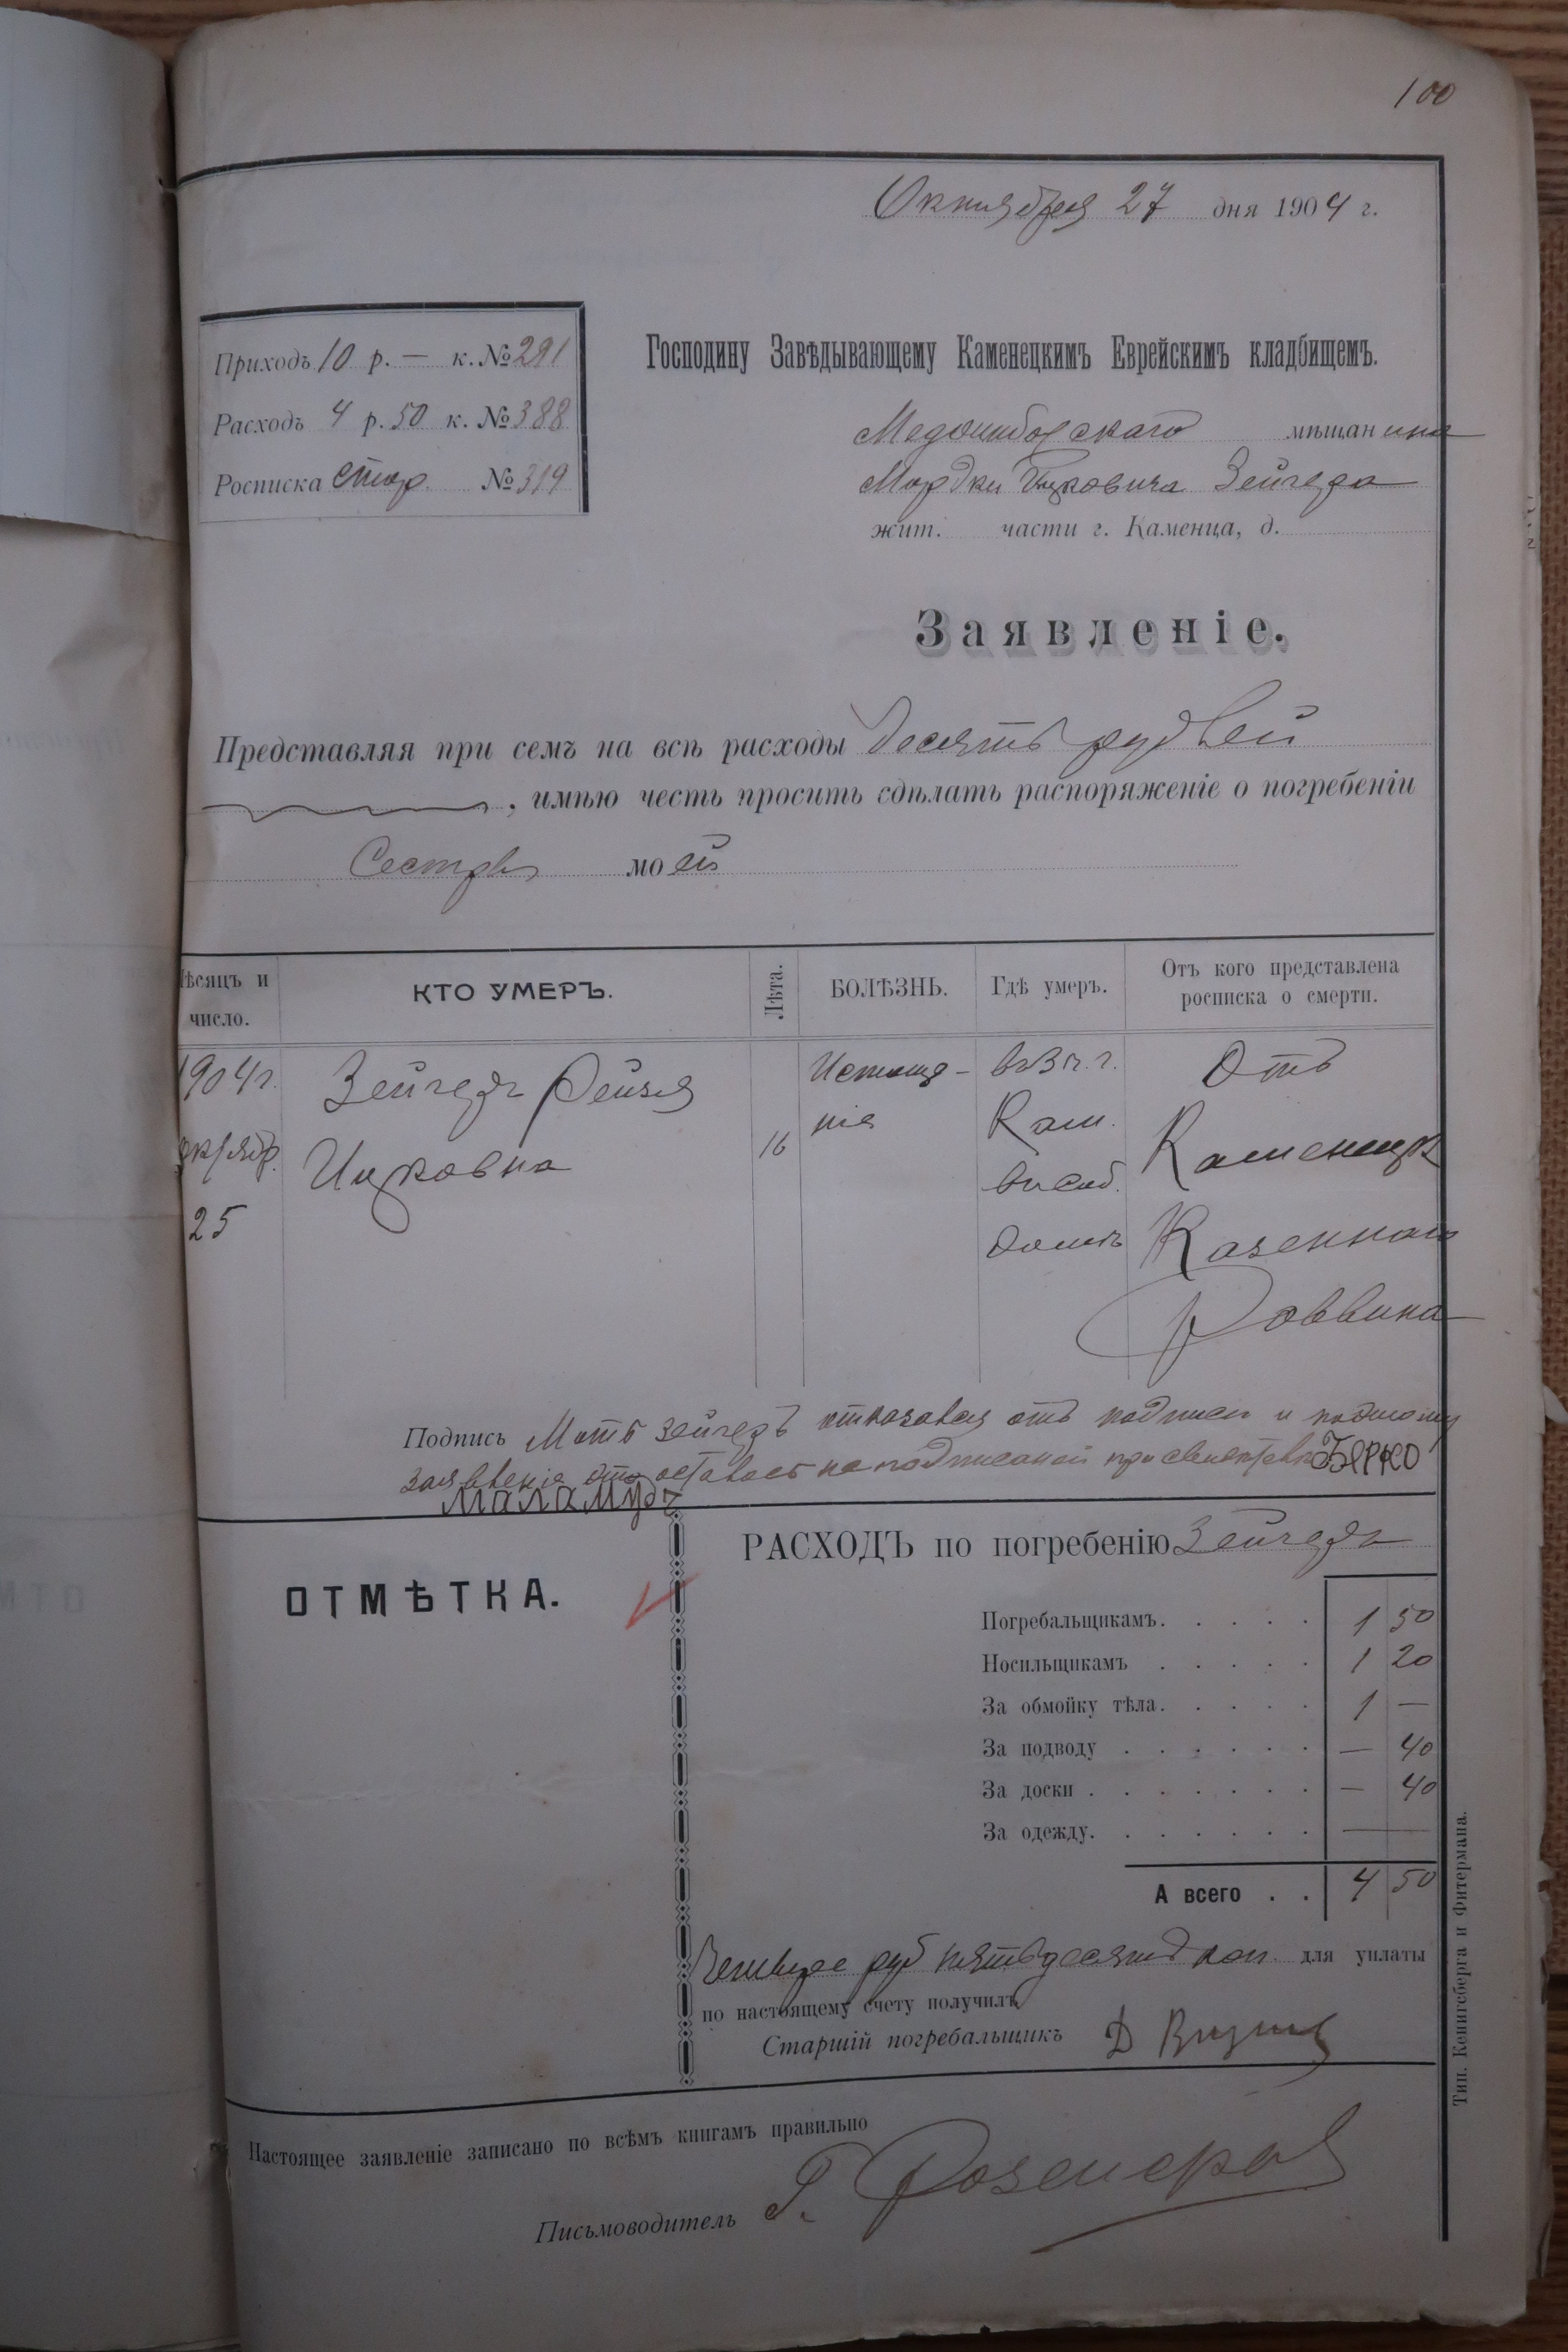 100
Октября 27 дня 1904 г.
Приходъ 10 р. — к. № 291
Расходъ 4 р. 50 к. № 388
Росписка стор. № 319
Господину Завѣдывающему Каменецкимъ Еврейскимъ кладбищемъ.
Меджибожскаго мѣщанина
Мордки Ицковича Зейгера
жит. части г. Каменца, д.
Заявленіе.
Представляя при семъ на всѣ расходы десять рублей
, имѣю честь просить сдѣлать распоряженіе о погребеніи
Сестры моей
Мѣсяцъ и число.
КТО УМЕРЪ.
Лѣта.
БОЛѢЗНЬ.
Гдѣ умеръ.
Отъ кого представлена росписка о смерти.
1904 г.
октяб.
25
Зейгеръ Рейзя
Ицковна
16
Истоще-
ніе
въ г.
Кам.
въ соб.
домѣ
Отъ
Каменецк
Казеннаго
Раввина
Подпись Мотъ Зейгеръ отказался отъ подписи и потому
заявленіе это остается не подписаной при Берко
маламудъ
ОТМѢТКА.
РАСХОДЪ по погребенію Зейгеръ
Погребальщикамъ. . . . . 1 50
Носильщикамъ . . . . . 1 20
За обмойку тѣла. . . . . 1 —
За подводу . . . . . . — 40
За доски . . . . . . . — 40
За одежду. . . . . . . —
А всего . . 4 50
Четыре руб пятьдесятъ коп. для уплаты
по настоящему счету получилъ
Старшій погребальщикъ Д
Настоящее заявленіе записано по всѣмъ книгамъ правильно
Письмоводитель Г.
Тип. Кенигсберга и Фитермана.